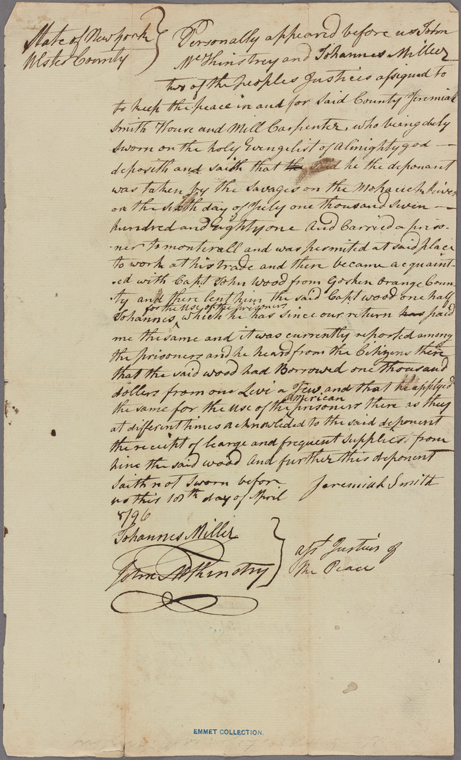 State of New york
Ulster County
Personally appeared before us John
McKinstrey and Johannes Miller
two of the peoples Justices assigned to
to keep the peace in and for said County Jeremiah
Smith House and Mill Carpenter, who being duly
Sworn on the holy Evangelist of Almighty god
deposeth and saith that the said he the deponant
was taken by the Savages on the Mohawk River
on the day of July one thousand Seven
hundred and Eighty one And Carried a priso-
ner to monterall and was permited at said place
to work at his trade and there became acquaint-
ed with Capt John Wood from Goshen Orange Coun-
ty and there lent him the said Capt wood one half
for the Use of the prisoners
Johannes, which he has since our return paid
me the same and it was currently reported among
the prisoners and he heard from the Citizens there
that the said wood had Borrowed one thousand
dollars from one Levi a Jew, and that he applyed
american
the same for the Use of the prisoners there as they
at different times acknowledged to the said deponant
the receipt of Learge and frequent Supplies from
hime the said wood And further this deponent
saith not Sworn before
us this 18th day of April
1796
Jeremiah Smith
Johannes Miller
John McKinstry
Asst Justices of
the Peace
EMMET COLLECTION.